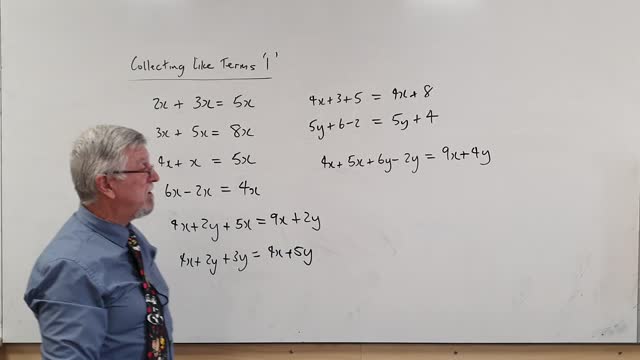 Collecting Like Terms '1'
2x + 3x = 5x
3x + 5x = 8x
4x + x = 5x
6x - 2x = 4x
4x + 2y + 5x = 9x + 2y
4x + 2y + 3y = 4x + 5y
4x + 3 + 5 = 4x + 8
5y + 6 - 2 = 5y + 4
4x + 5x + 6y - 2y = 9x + 4y